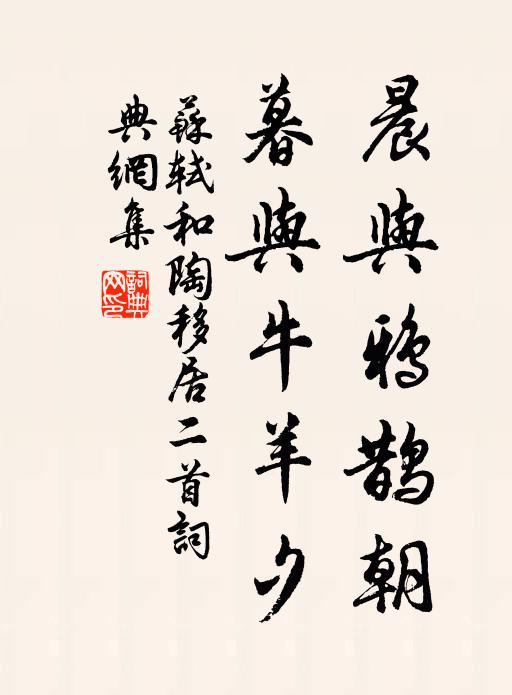 晨與鴉鵲朝
暮與牛羊夕
蘇軾和陶移居二首詞
典網集
詞典網印